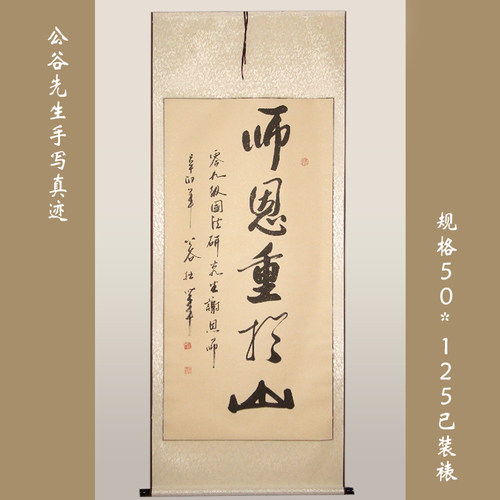 公谷先生手写真迹
师恩重於山
零九级國法研究生謝恩师
辛卯 公谷
规格50*125已装裱